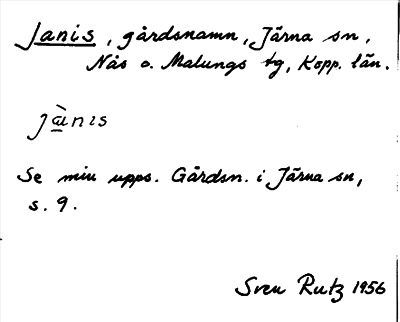 Janis, gårdsnamn, Järna sn,
Nås o. Malungs tg, Kopp. län.
jὰ̱nıs
Se min upps. Gårdsn. i Järna sn,
s. 9.
Sven Rutz 1956